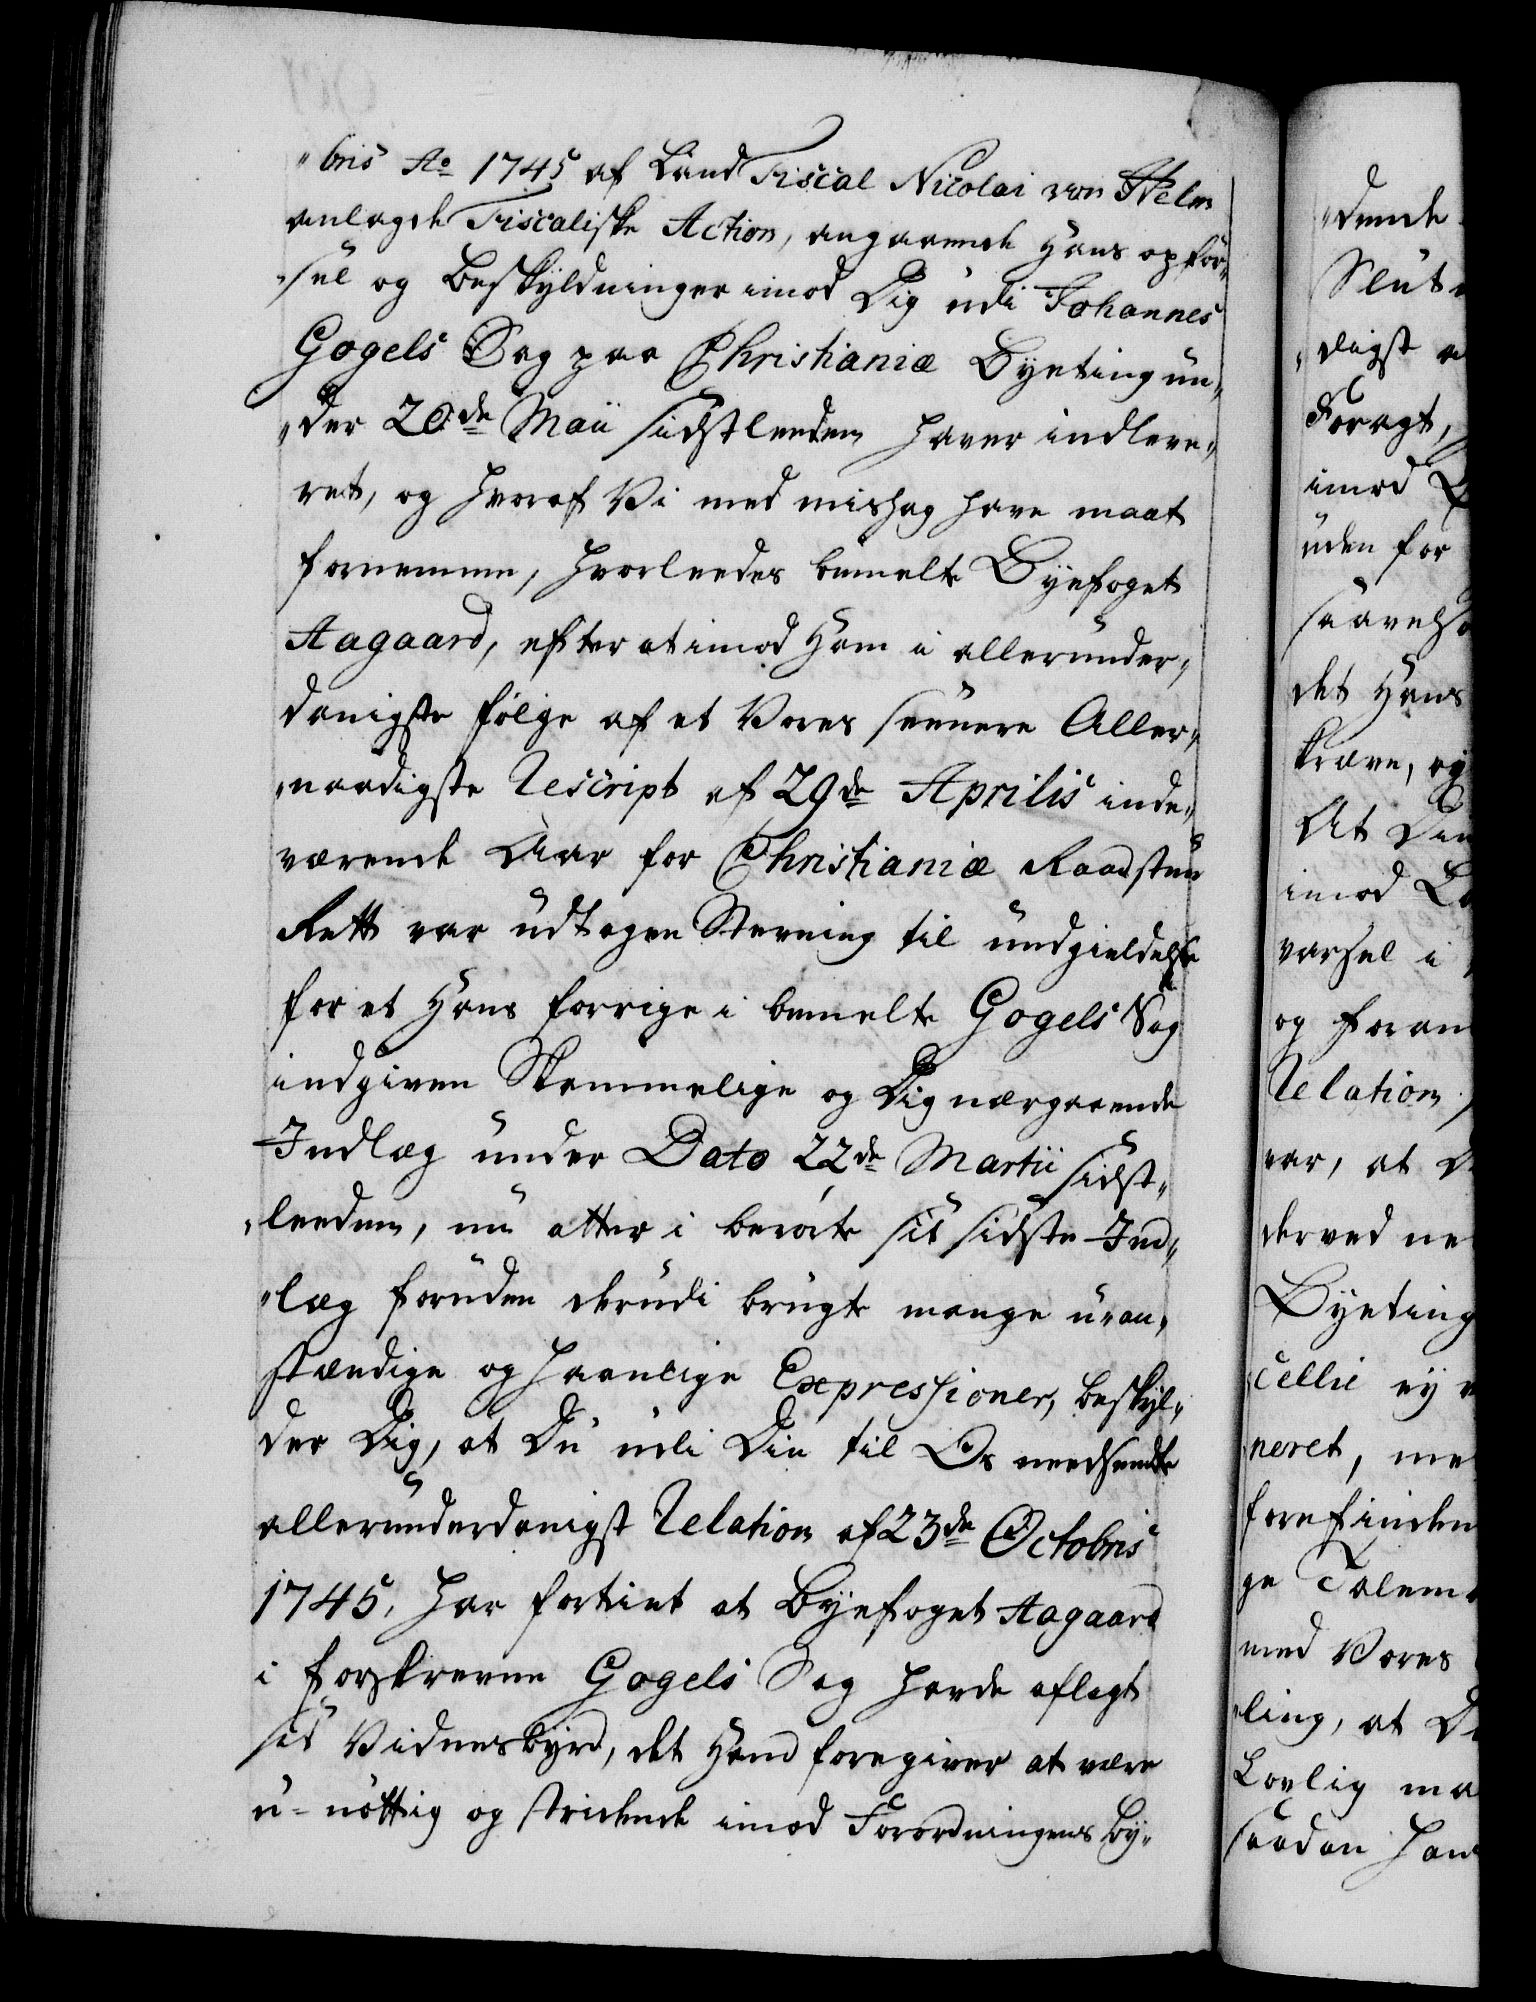 "bris Ao 1745 af Land Fiscal Nicolai von
anlagde Fiscaliske Action, angaaende Hans opför„
„sel og Beskÿldninger imod Dig udi Johannes
Gogels Sag paa Christianiæ Bÿeting un„
„der 20de Maii sidstleeden haver indleve„
ret, og hvoraf Vi med mishag have maat
fornemme, hvorleedes bemelte Bÿefoget
Aagaard, efter at imod Ham i allerunder„
danigste følge af et Vores seenere Aller„
„naadigste Rescript af 29de Aprilis inde„
værende Aar for Christianiæ Raadstue
Rett var udtagen Stevning til undgieldelse
for et Hans forrige i bemelte Gogels Sag
indgiven Skammelige og Dig nærgaaende
Indlæg under Dato 22de Martii sidst„
„leeden, nu atter i berörte sit sidste Ind„
„læg foruden derudi brugte mange u-an„
stændige og haanlige Expressioner, beskÿl„
der Dig, at Du udi Din til Os needsendte
allerunderdanigst Relation af 23de Octobris
1745, har fortiet at Bÿefoget Aagaard
i forskrevne Gogels Sag havde aflagt
sit Vidnesbÿrd, det Hand foregiver at være
u-nöttig og stridende imod Forordningens bÿ„
„dende
Slut
„digst
Foragt,
imod
uden for
saavelso
det Hans
kræve, og
At Din
imod
varsel i
og foran
Relation
var, at
derved ne
Bÿeting
cellie eÿ
neret, me
forefinden
ge Talem
med Vores
„ling, at
Lovlig ma
saadan Han